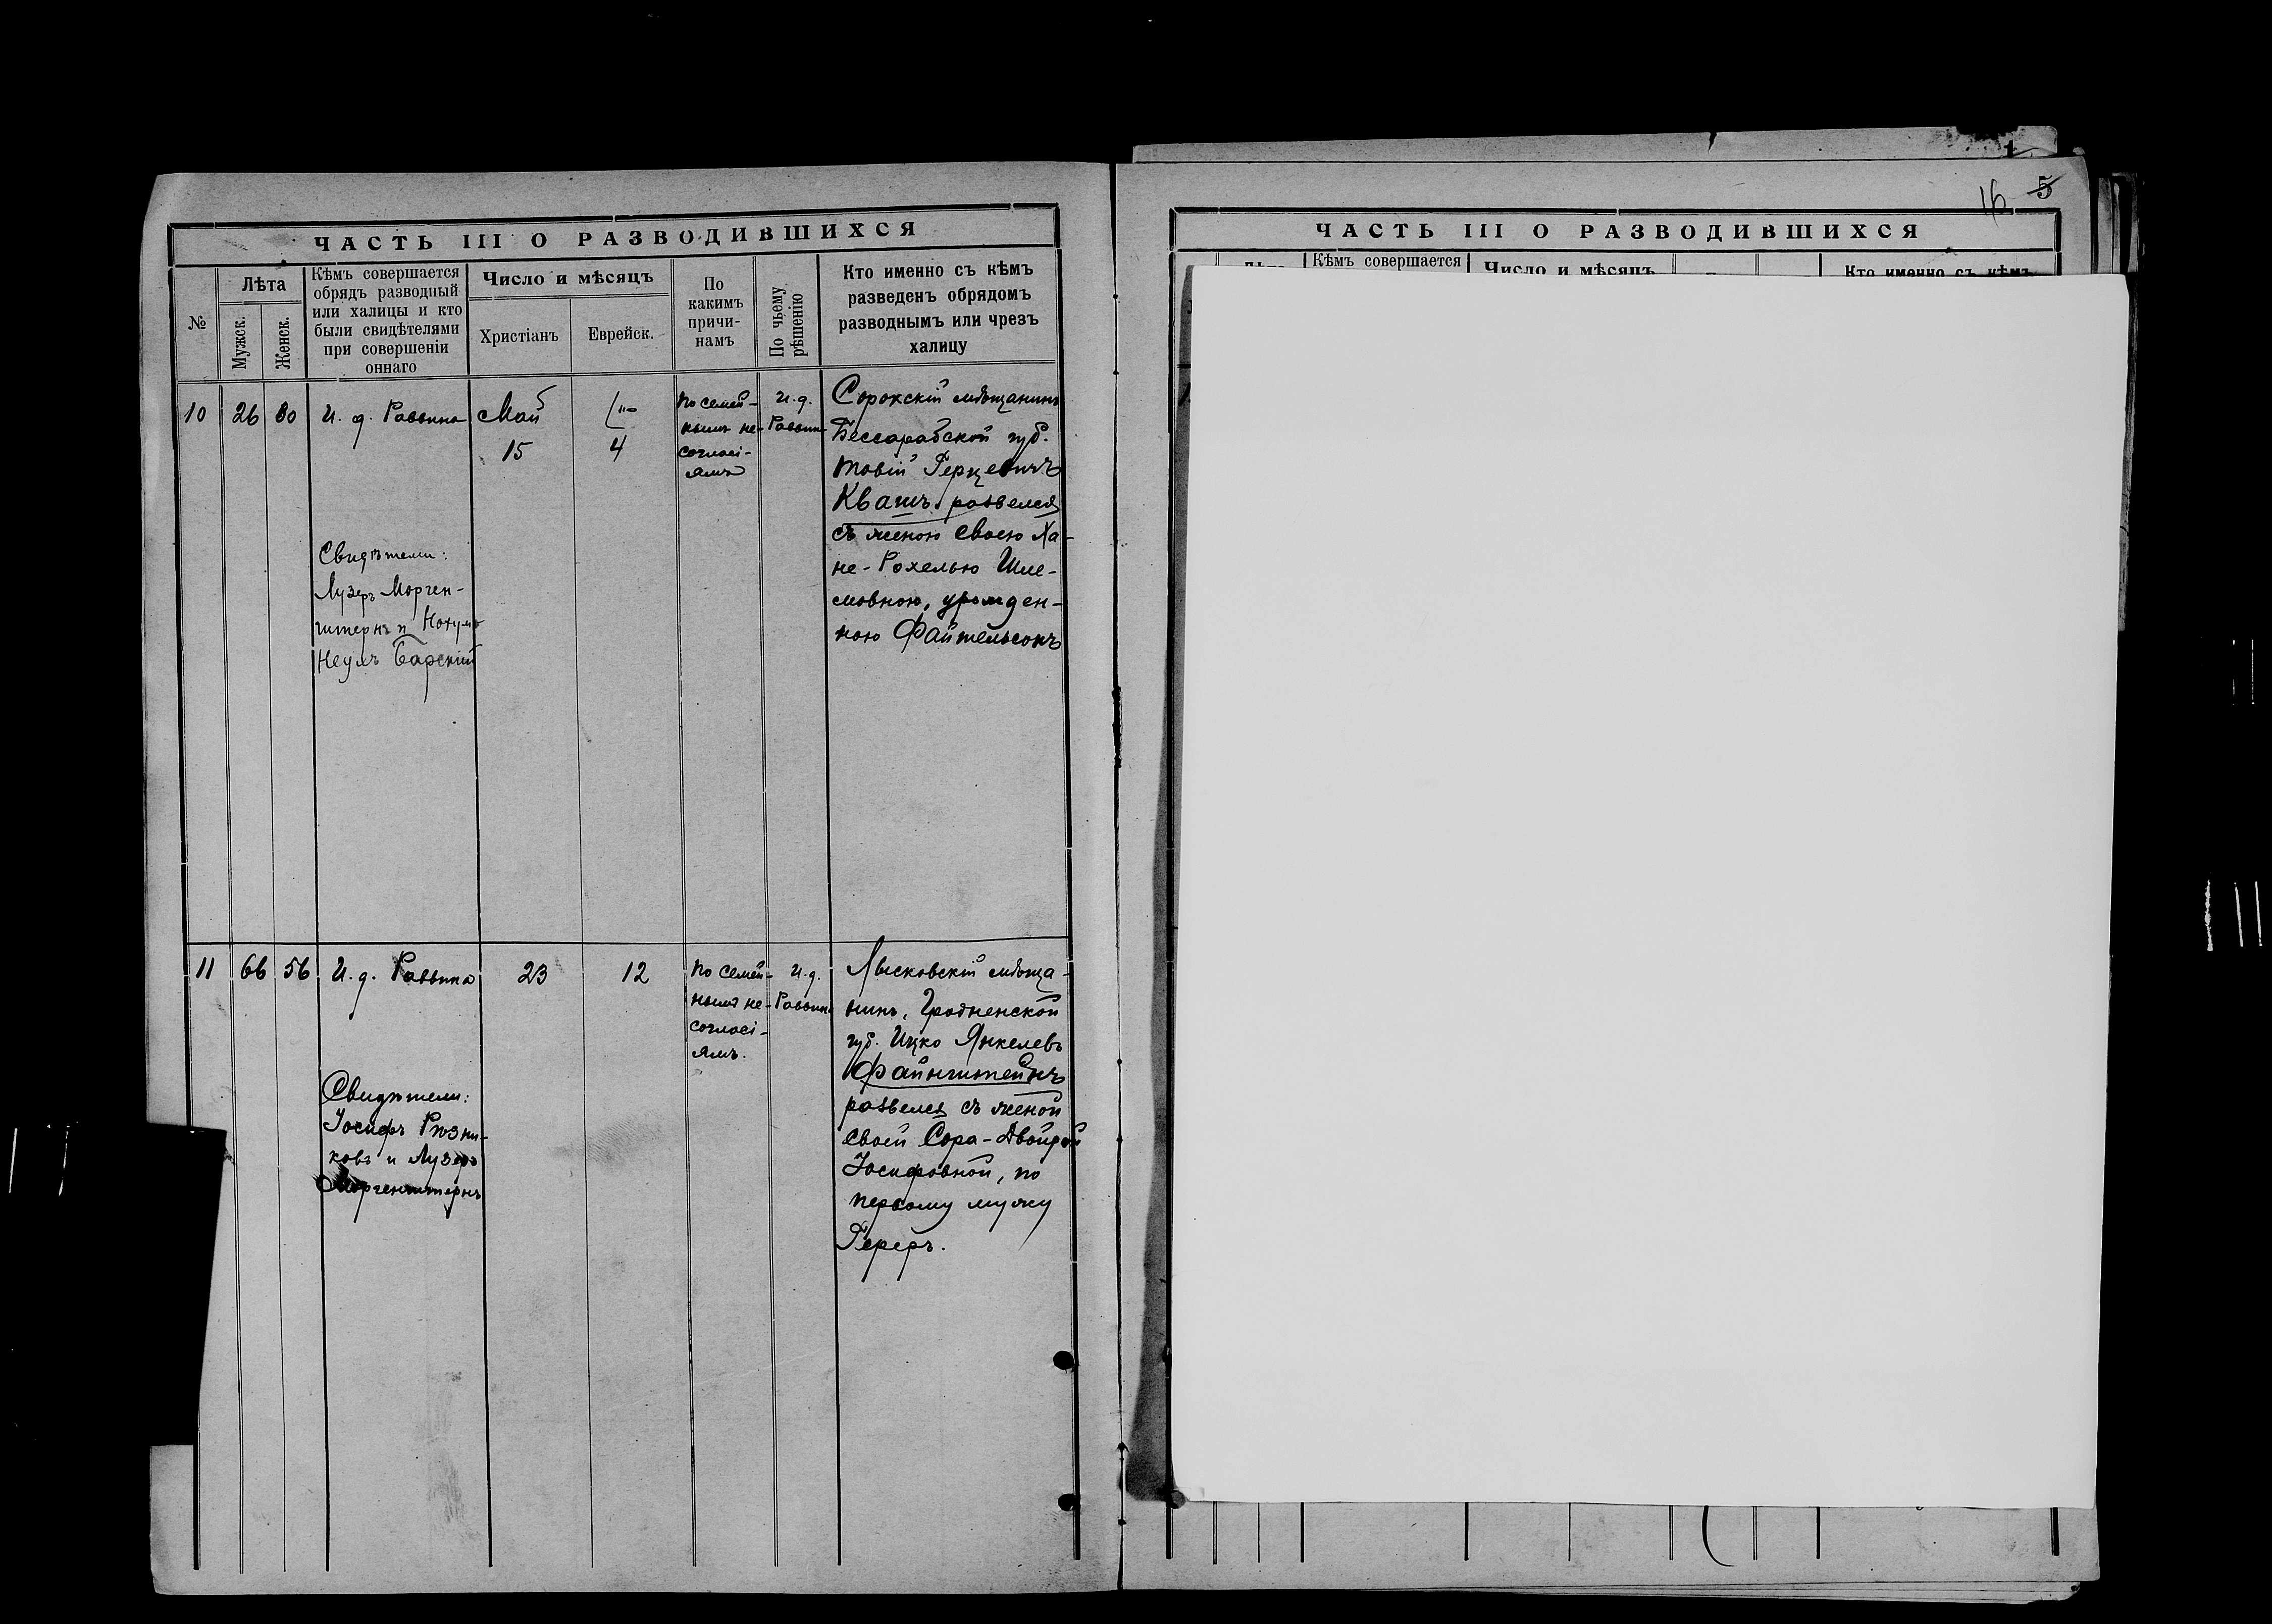 ЧАСТЬ III О РАЗВОДИВШИХСЯ
№
Лѣта
Мужск.
Женск.
Кѣмъ совершается
обрядъ разводный
или халицы и кто
были свидѣтелями
при совершеніи
оннаго
Число и мѣсяцъ
Христіанъ
Еврейск.
По
какимъ
причи-
намъ
По чьему
рѣшенію
Кто именно съ кѣмъ
разведенъ обрядомъ
разводнымъ или чрезъ
халицу
10
26
30
И. д. Раввина
Свидѣтели:
Лузеръ Морген-
штернъ и Нохумъ
Барскій
Май
15
4
По семей-
нымъ не-
согласі-
ямъ
И. д.
Раввин
Сорокскій мѣщанинъ
Бессарабской губ.
Товій Герцевичъ
Квашъ развелся
съ женою своею Ха-
не-Рохелью Шле-
мовною, урожден-
ною Файтельсонъ
11
66
56
И. д. Раввина
Свидѣтели:
Іосифъ Рѣзни-
ковъ и Лузеръ
Моргенштернъ
23
12
По семей-
нымъ не-
согласі-
ямъ.
И. д.
Раввин
Лысковскій мѣща-
нинъ, Гродненской
губ. Ицко Янкелевъ
Файнштейнъ
развелся съ женой
своей Сора-Двойрой
Іосифовной, по
первому мужу
16 5
ЧАСТЬ III О РАЗВОДИВШИХСЯ
Кѣмъ совершается
Число и мѣсяцъ
Кто именно съ кѣмъ